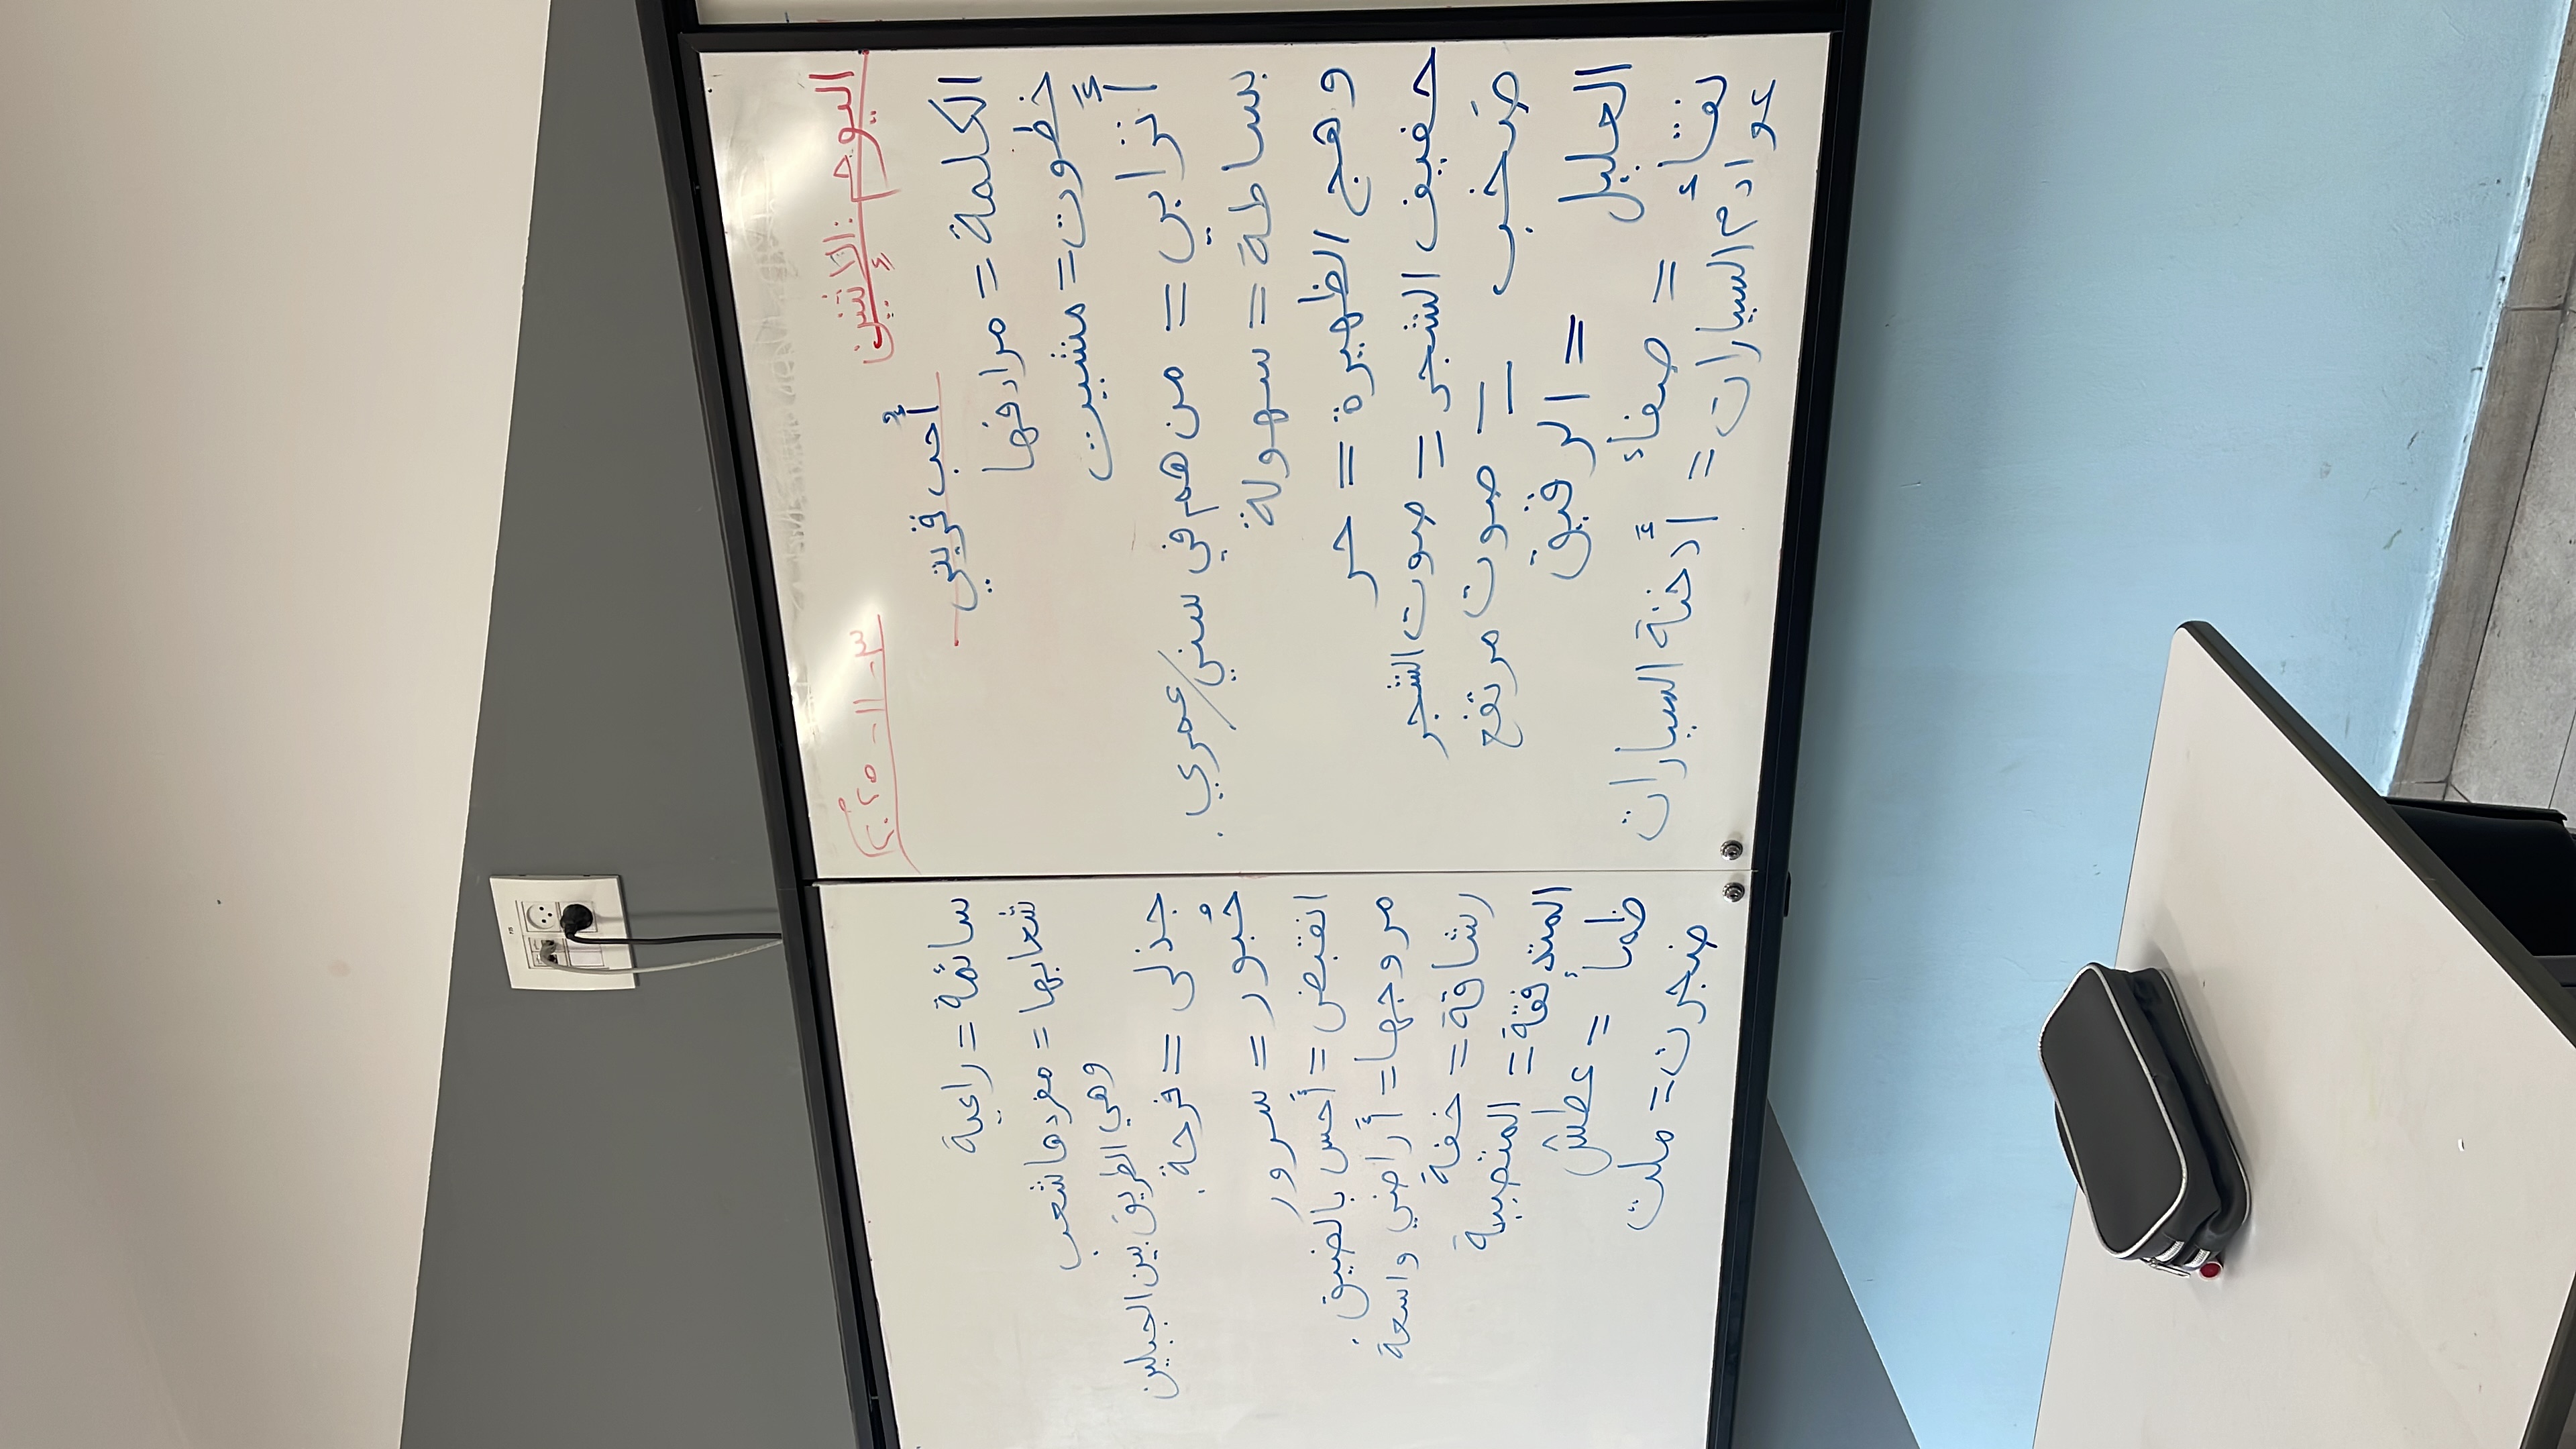 اليوم: الإثنين ٣-١١-٢٠٢٥م
أُحب قريتي
الكلمة = مرادفها
خطوت = مشيت
أَترابي = من هم في سني/عمري.
بساطة = سهولة
وهج الظهيرة = حر
حفيف الشجر = صوت الشجر
صَخب = صوت مرتفع
العليل = الرقيق
نقاءُ = صفاءُ
عوادم السيارات = أَدخنة السيارات
سائمة = راعية
شعابها = مفردها شعب
وهي الطريق بين الجبلين
جذلى = فرحة.
حُبور = سرور
انقبض = أحس بالضيق.
مروجها = أراضي واسعة
رشاقة = خفة
المتدفقة = المنصبة
ظمأ = عطش
ضجرت = ملت